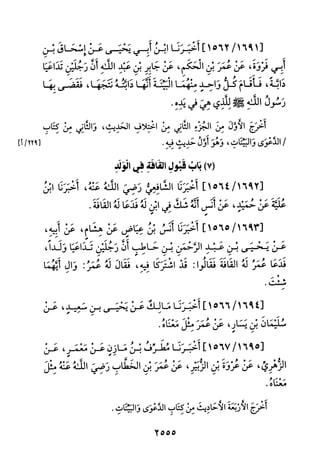 [١٦٩١/ ١٥٦٢] أَخْبَرَنَا ابْنُ أَبِي يَحْيَى عَنْ إِسْحَاقَ بْنِ
أَبِي فَرْوَةَ، عَنْ عُمَرَ بْنِ الْحَكَمِ، عَنْ جَابِرِ بْنِ عَبْدِ اللَّهِ أَنَّ رَجُلَيْنِ تَدَاعَيَا
دَابَّةً، فَأَقَامَ كُلُّ وَاحِدٍ مِنْهُمَا الْبَيِّنَةَ أَنَّهَا دَابَّتُهُ نَتَجَهَا، فَقَضَى بِهَا
رَسُولُ اللَّهِ ﷺ لِلَّذِي هِيَ فِي يَدِهِ.
أَخْرَجَ الْأَوَّلَ مِنَ الْجُزْءِ الثَّانِي مِنْ اخْتِلَافِ الْحَدِيثِ، وَالثَّانِي مِنْ كِتَابِ
/ الدَّعْوَى وَالْبَيِّنَاتِ، وَهُوَ أَوَّلُ حَدِيثٍ فِيهِ. [٢٢٩/أ]
(٧) بَابُ قَبُولِ الْقَافَةِ فِي الْوَلَدِ
[١٦٩٢/ ١٥٦٤] أَخْبَرَنَا الشَّافِعِيُّ رَضِيَ اللَّهُ عَنْهُ، أَخْبَرَنَا ابْنُ
عُلَيَّةَ عَنْ حُمَيْدٍ، عَنْ أَنَسٍ أَنَّهُ شَكَّ فِي ابْنٍ لَهُ فَدَعَا لَهُ الْقَافَةَ.
[١٦٩٣/ ١٥٦٥] أَخْبَرَنَا أَنَسُ بْنُ عِيَاضٍ عَنْ هِشَامٍ، عَنْ أَبِيهِ،
عَنْ يَحْيَى بْنِ عَبْدِ الرَّحْمَنِ بْنِ حَاطِبٍ أَنَّ رَجُلَيْنِ تَدَاعَيَا وَلَداً،
فَدَعَا عُمَرُ لَهُ الْقَافَةَ فَقَالُوا: قَدْ اشْتَرَكَا فِيهِ، فَقَالَ لَهُ عُمَرُ: وَالِ أَيَّهُمَا
شِئْتَ.
[١٦٩٤/ ١٥٦٦] أَخْبَرَنَا مَالِكٌ عَنْ يَحْيَى بنِ سَعِيدٍ، عَنْ
سُلَيْمَانَ بْنِ يَسَارٍ، عَنْ عُمَرَ مِثْلَ مَعْنَاهُ.
[١٦٩٥/ ١٥٦٧] أَخْبَرَنَا مُطَرِّفُ بْنُ مَازِنٍ عَنْ مَعْمَرٍ، عَنْ
الزُّهْرِيِّ، عَنْ عُرْوَةَ بْنِ الزُّبَيْرِ، عَنْ عُمَرَ بْنِ الْخَطَّابِ رَضِيَ اللَّهُ عَنْهُ مِثْلَ
مَعْنَاهُ.
أَخْرَجَ الْأَرْبَعَةَ الْأَحَادِيثَ مِنْ كِتَابِ الدَّعْوَى وَالْبَيِّنَاتِ.
٢٥٥٥